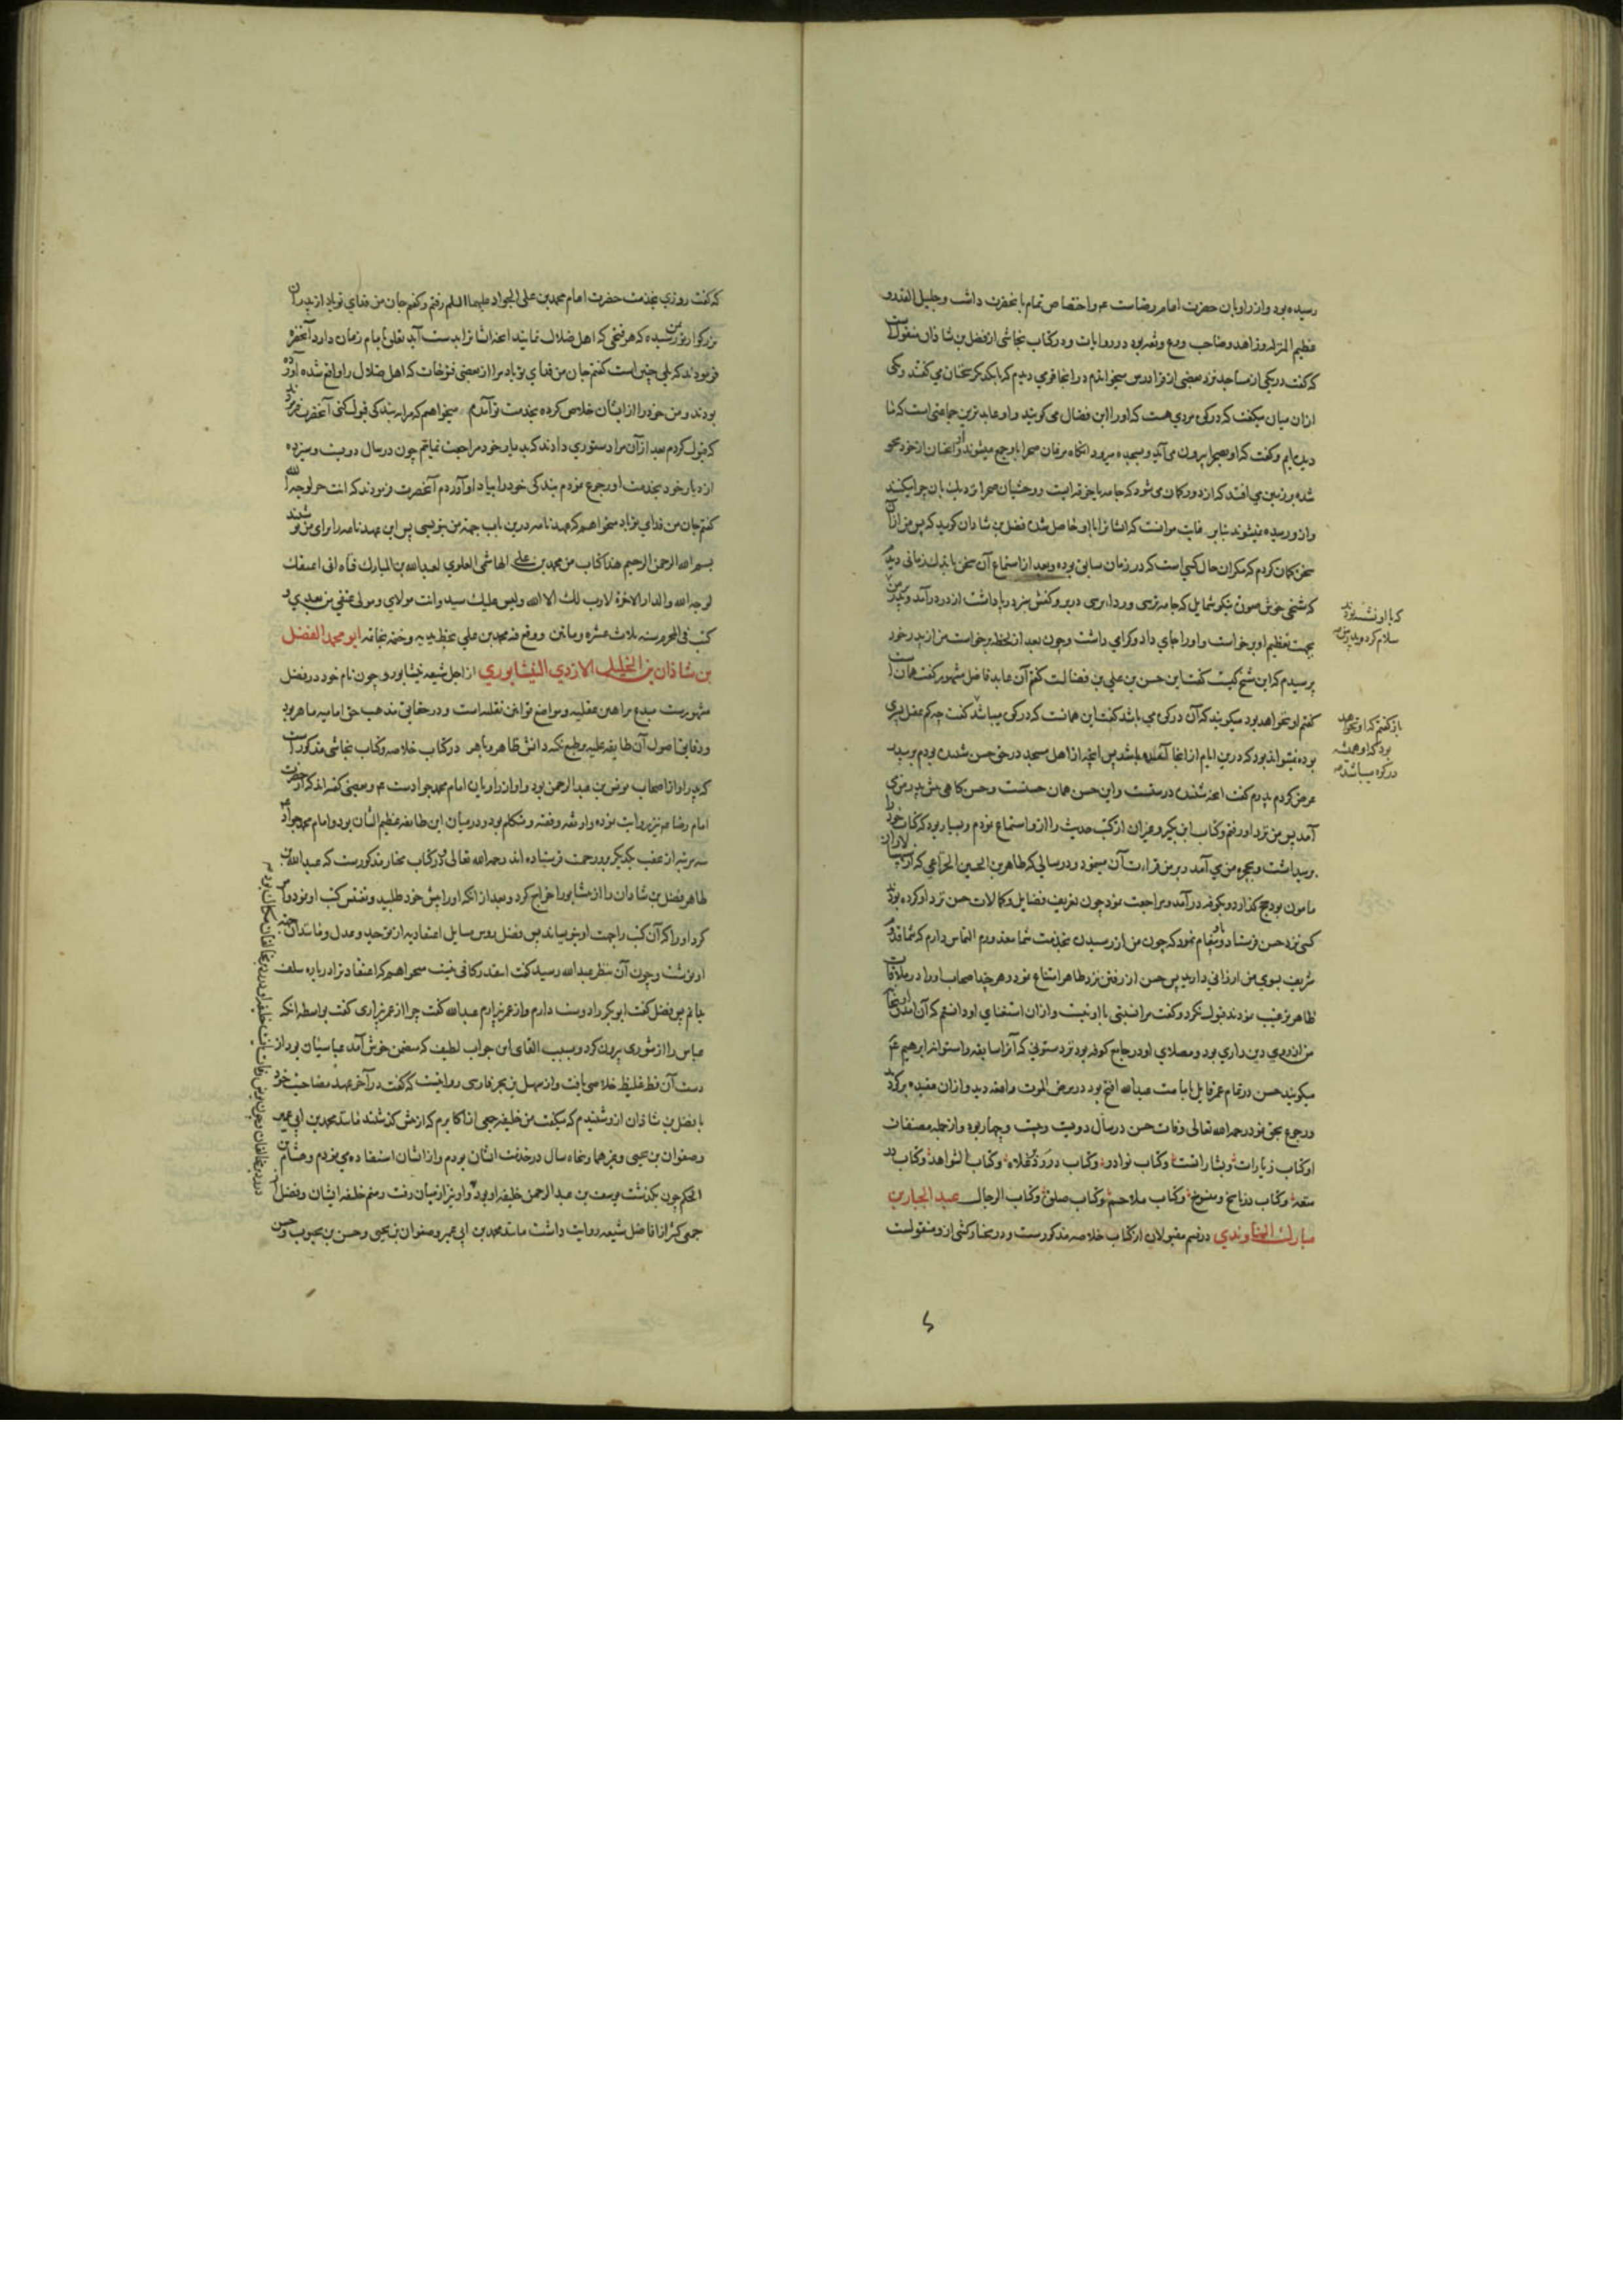 رسیده بود واز راویان حضرت امام رضاست ع و اختصاص تمام بآنحضرت داشت وجلیل القدر و
عظیم المنزله وزاهد وصاحب ورع وثقه بود در روایات ودر کتاب نجاشی از فضل بن شاذان منقولست
که گفت در یکی از مساجد نزد بعضی از قراء درس میخواندم در انجا قومی دیدم که با یکدیکر سخنان می گفتند ویکی
ازان میان میگفت که در کوه مردی هست که او را ابن فضال می گویند واو عابد ترین جماعتی است که ما
دیده ایم وگفت که او بصحرا بیرون می آید وبسجده میرود آنگاه مرغان صحرا با او جمع میشوند واو چنان از خود محو
شده بر زمین می افتد که از دور گمان می شود که جامه یا خرقه ایست ووحشیان صحرا نزدیک بان چرا میکنند
واز او رمیده نمیشوند بنابر غایت موانست که ایشانرا با او حاصل شده فضل بن شاذان گوید که پس من ازان
سخن گمان کردم که مگر آن حال کسی است که در زمان سابق بوده وبعد از استماع آن سخن باندک زمانی دیدم
که شخی خوش صورت نیکو شمایل که جامه نرسی وردای نرسی در بر وکفش سبز در پا داشت از در درآمد وبر پدر من
بجهت تعظیم او برخواست واو را جای داد وگرامی داشت وچون بعد از لحظه برخواست من از پدر خود
پرسیدم که این شیخ کیست گفت این حسن بن علی بن فضالست گفتم آن عابد فاضل مشهور گفت همانست
گفتم او نخواهد بود میگویند که آن در کوه می باشد گفت این همانست که در کوه میباشد گفت چه کم عقل پسری
بوده نمیتواند بود که درین ایام از انجا آمده باشد پس آنچه از اهل مسجد در حق حسن شنیده بودم بپدر
عرض کردم پدرم گفت آنچه شنیده درستست واین حسن همان حسنست وحسن گاهی پیش پدر من می
آمد پس من نزد او رفتم وکتاب ابن بکیر وغیر آن از کتب حدیث را ازو استماع نمودم وبسیار بود که کتاب خود را
برمیداشت وبحجره من می آمد وبر من قراءت آن مینمود ودر سالی که طاهر بن الحسین الخزاعی که از سپهسالاران
مامون بود حج گذارد وبکوفه درآمد ومراجعت نمود چون تعریف فضایل وکمالات حسن نزد او کرده بودند
کسی نزد حسن فرستاد وپیغام نمود که چون من از رسیدن بخدمت شما معذورم التماس دارم که شما قدم
شریف بسوی من ارزانی دارید پس حسن از رفتن نزد طاهر امتناع نمود وهر چند اصحاب او را در ملاقات
طاهر ترغیب نمودند قبول نکرد وگفت مرا نسبتی با او نیست وازان استغنای او دانستم که آن آمدن او بنجا
من از روی دین داری بود ومصلای او در جامع کوفه بود نزد ستونی که آنرا سابعه واستوانه ابراهیم ع
میگویند حسن در تمام عمر قایل بامامت عبدالله افطح بود در مرض الموت واقعه دید وازان عقیده برگردید
ورجوع بحق نمود رحمه الله تعالی وفات حسن در سال دویست وبیست وچهار بود واز جمله مصنفات
او کتاب زیارات وبشاراتست وکتاب نوادر وکتاب در رد غلاه وکتاب الشواهد وکتاب در
متعه وکتاب در ناسخ ومنسوخ وکتاب ملاحم وکتاب صلوة وکتاب الرجال عبد الجبار بن
مبارك النهاوندی در قسم مقبولان از کتاب خلاصه مذکورست ودر مختار کشی ازو منقولست
که با او نشسته بودند
سلام کرد وپدر من
باز گفتم که او نخواهد
بود که او همیشه
در کوه میباشد
که گفت روزی بخدمت حضرت امام محمد بن علی الجواد علیهما السلم رفتم وگفتم جان من فدای تو باد از پدران
بزرگوار تو بمن رسیده که هر فتحی که اهل ضلال نمایند آنچه ایشانرا بدست آید تعلق بامام زمان دارد آنحضرت
فرمودند که بلی چنین است گفتم جان من فدای تو باد مرا از بعضی فتوحات که اهل ضلال را واقع شده آورده
بودند ومن خود را از ایشان خلاص کرده بخدمت تو آمدم میخواهم که مرا به بندگی قبول کنی آنحضرت فرمودند
که قبول کردم بعد ازآن مرا دستوری دادند که بدیار خود مراجعت نمایم چون در سال دویست وسیزده
از دیار خود بخدمت او رجوع نمودم بندگی خود را بیاد او آوردم آنحضرت فرمودند که انت حر لوجه الله
گفتم جان من فدای تو باد میخواهم که عهدنامه درین باب جهة من بنویسی پس این عهدنامه را برای من نوشتند
بسم الله الرحمن الرحیم هذا کتاب من محمد بن علی الهاشمی العلوی لعبدالله بن المبارك فتاه انی اعتقك
لوجه الله والدار الاخرة لا رب لك الا الله ولیس علیك سید وانت مولای ومولی عقبی من بعدی و
کتب فی المحرم سنه ثلاث عشره وماتین ووقع فیه محمد بن علی بخط یده وختمه بخاتمه ابو محمد الفضل
بن شاذان بن الخلیل الازدی النیشابوری از اجل شیعه نیشابور وچون نام خود در فضل
مشهورست مبدع براهین عقلیه ومواضع قوانین نقلیه است ودر حقایق مذهب حق امامیه ماهر بود
ودقایق اصول آن طایفه علیه بر طبع نکته دانش ظاهر وباهر در کتاب خلاصه وکتاب نجاشی مذکورست
که پدر او از اصحاب یونس بن عبدالرحمن بود واو از راویان امام محمد جوادست ع وبعضی گفته اند که از حضرت
امام رضا ع نیز روایت نموده واو ثقه وفقیه ومتکلم بود ودر میان این طایفه عظیم الشان بود وامام محمد جواد ع
سه مرتبه از عقب یکدیگر بر او رحمت فرستاده اند رحمه الله تعالی ودر کتاب مختار مذکورست که عبدالله بن
طاهر فضل بن شاذان را از نیشابور اخراج کرد وبعد از آنکه او را پیش خود طلبید وتفتیش کتب او نمود وامر
کرد او را که آن کتب را جهت او بنویساند پس فضل روس مسایل اعتقادیه از توحید وعدل ومانند آن جهة
او نوشت وچون آن بنظر عبدالله رسید گفت اینقدر کافی نیست میخواهم که اعتقاد ترا درباره سلف
بدانم پس فضل گفت ابوبکر را دوست دارم واز عمر بیزارم عبدالله گفت چرا از عمر بیزاری گفت بواسطه آنکه
عباس را از شوری بیرون کرد وبسبب القای این جواب لطیف که متضمن خوش آمد عباسیان بود از
دست آن فظ غلیظ خلاصی یافت واز سهل بن بحر فارسی روایتست که گفت در آخر عهد مصاحبت خود
با فضل بن شاذان ازو شنیدم که میگفت من خلیفه جمعی از اکابرم که از پیش گذشتند مانند محمد بن ابی عمیر
وصفوان بن یحیی وغیرهما وپنجاه سال در خدمت ایشان بودم واز ایشان استفاده می نمودم وهشام بن
الحکم چون بگذشت یونس بن عبدالرحمن خلیفه او بود واو نیز از میان رفت ومنم خلیفه ایشان وفضل از
جمعی کثیر از افاضل شیعه روایت داشت مانند محمد بن ابی عمیر وصفوان بن یحیی وحسن بن محبوب وحسن